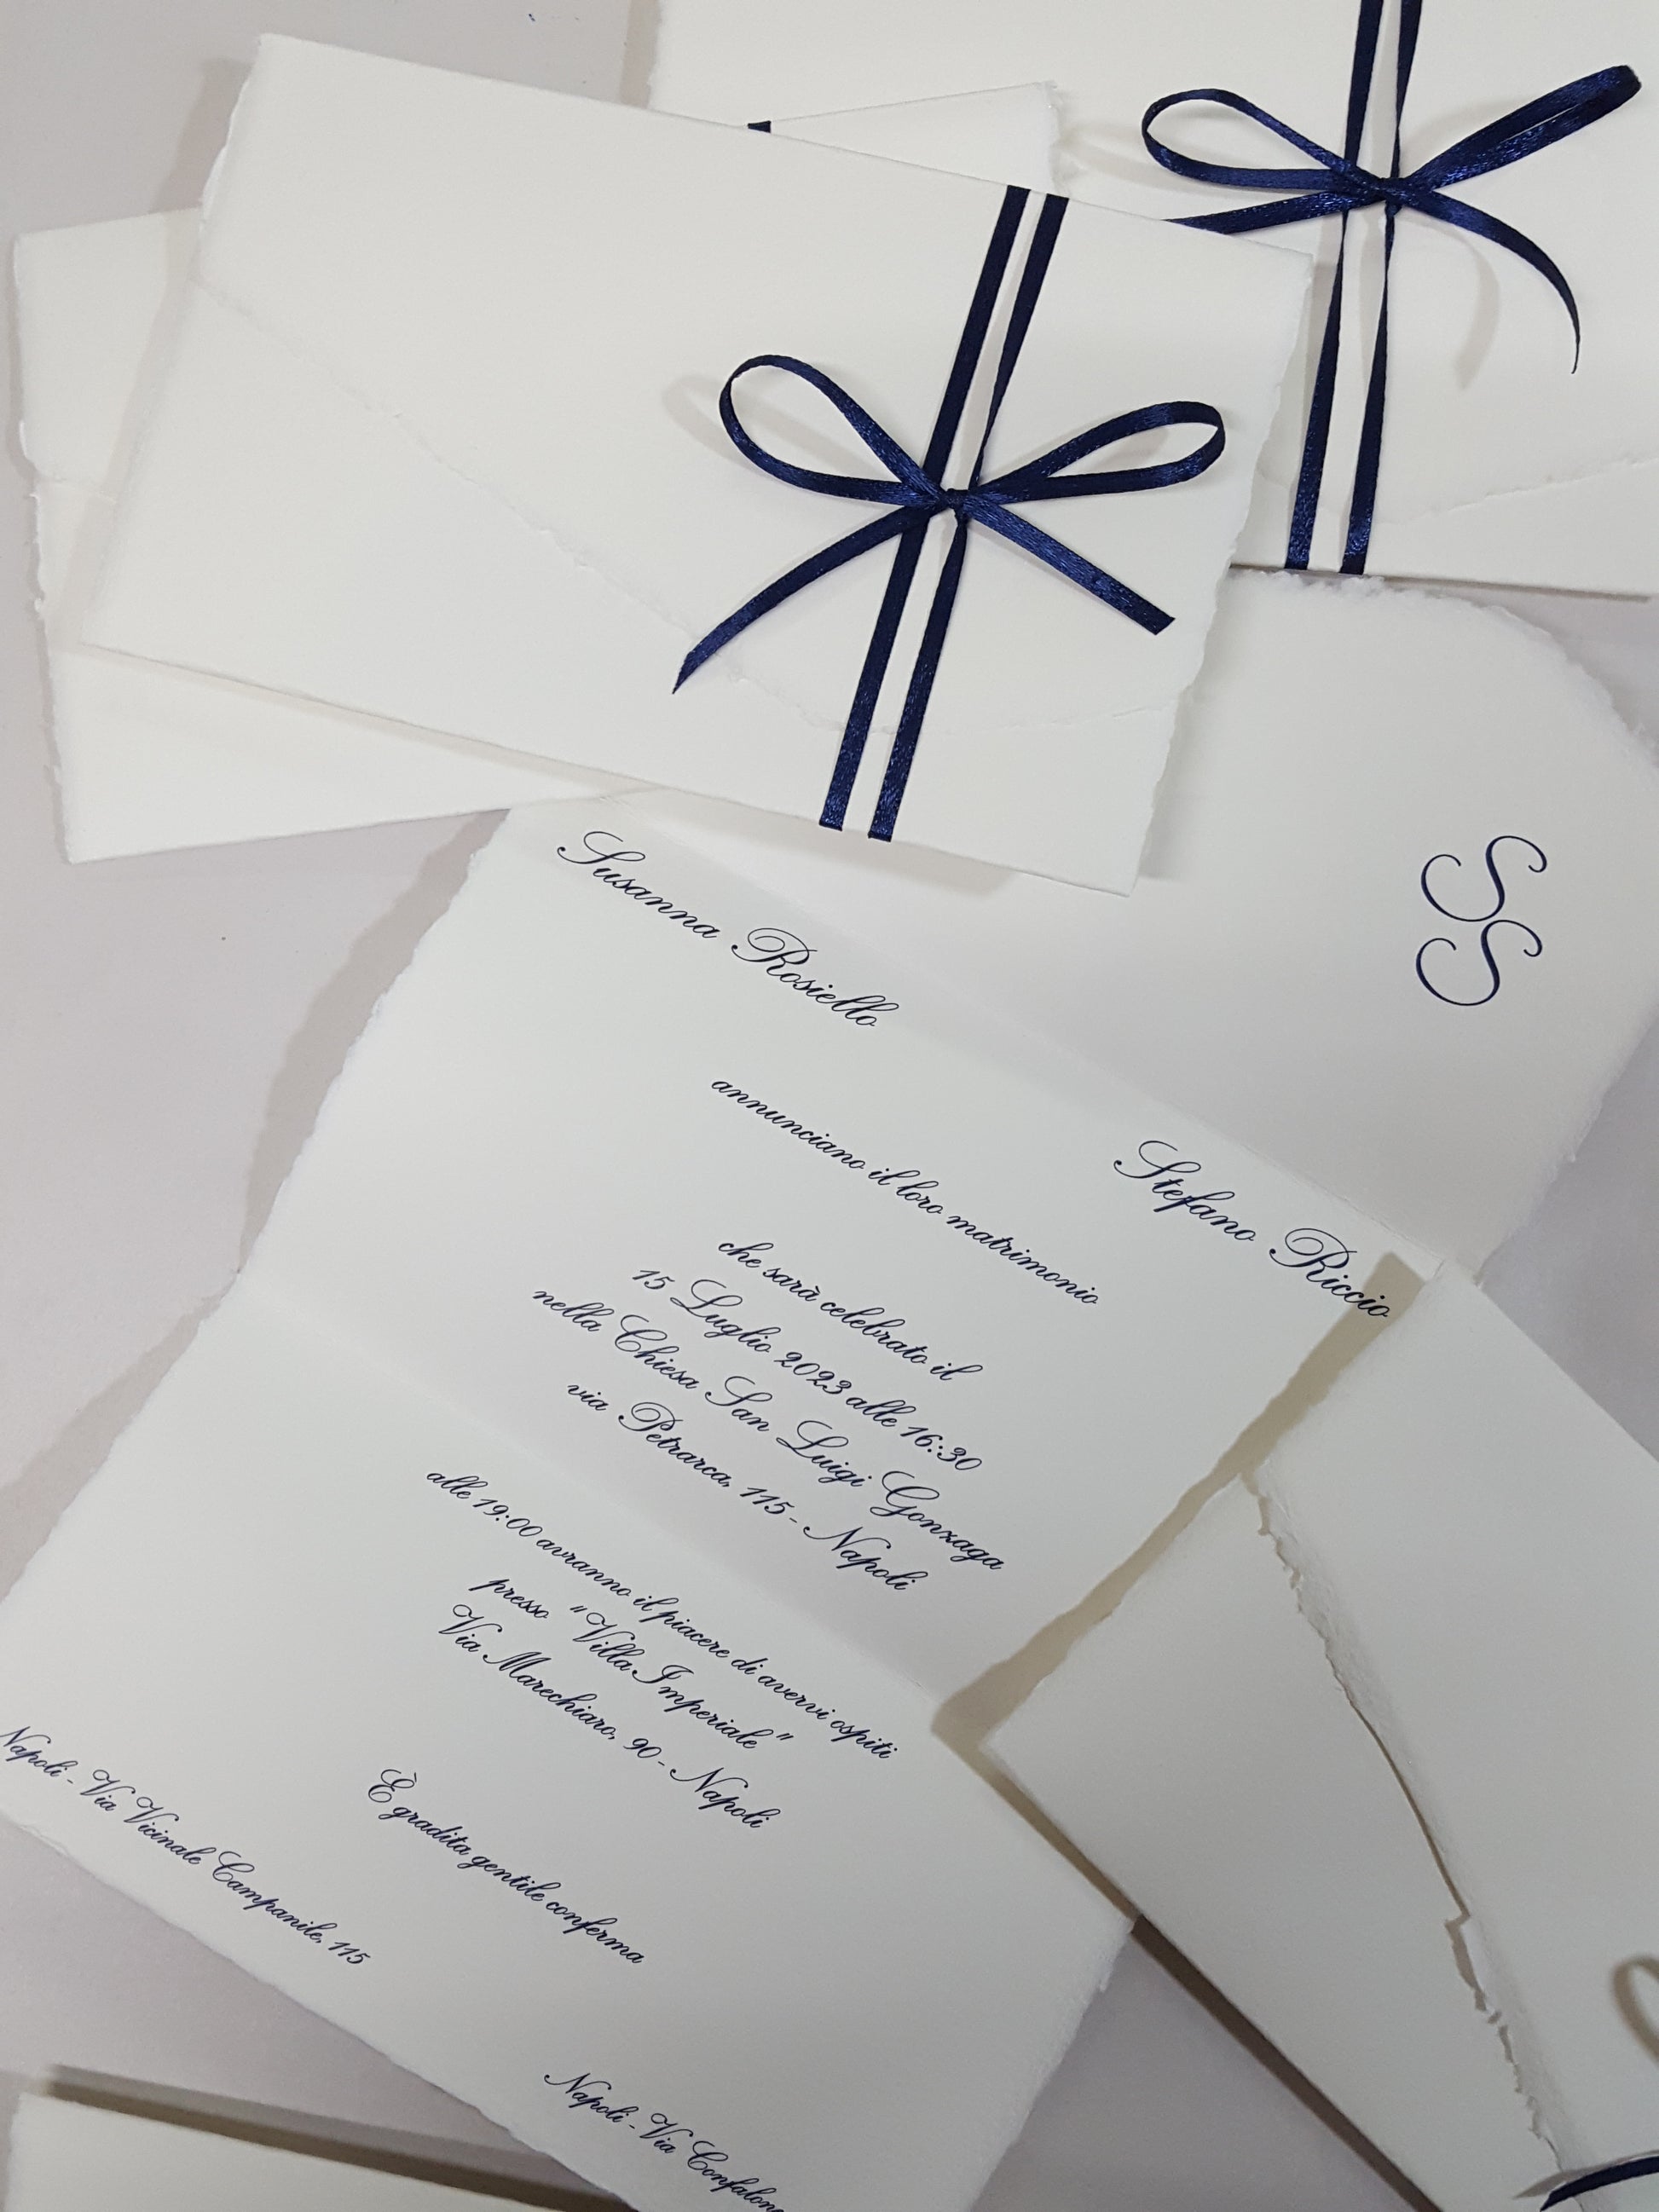 S
S
Susanna Rosiello
Stefano Riccio
annunciano il loro matrimonio
che sarà celebrato il
15 Luglio 2023 alle 16:30
nella Chiesa San Luigi Gonzaga
via Petrarca, 115 - Napoli
alle 19:00 avranno il piacere di avervi ospiti
presso "Villa Imperiale"
Via Marechiaro, 90 - Napoli
È gradita gentile conferma
Napoli - Via Vicinale Campanile, 115
Napoli - Via